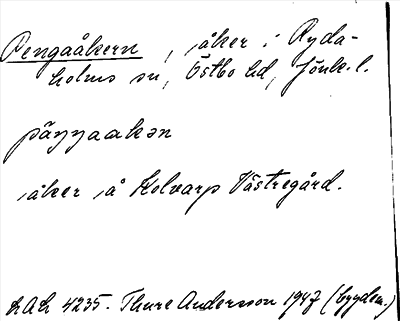 Pengaåkern, åker i Ryda-
holms sn, Östbo hd, Jönk. l.
päŋŋaakən
åker på Kolvarp Västregård.
LAL 4235. Thure Andersson 1947 (bygdem.)